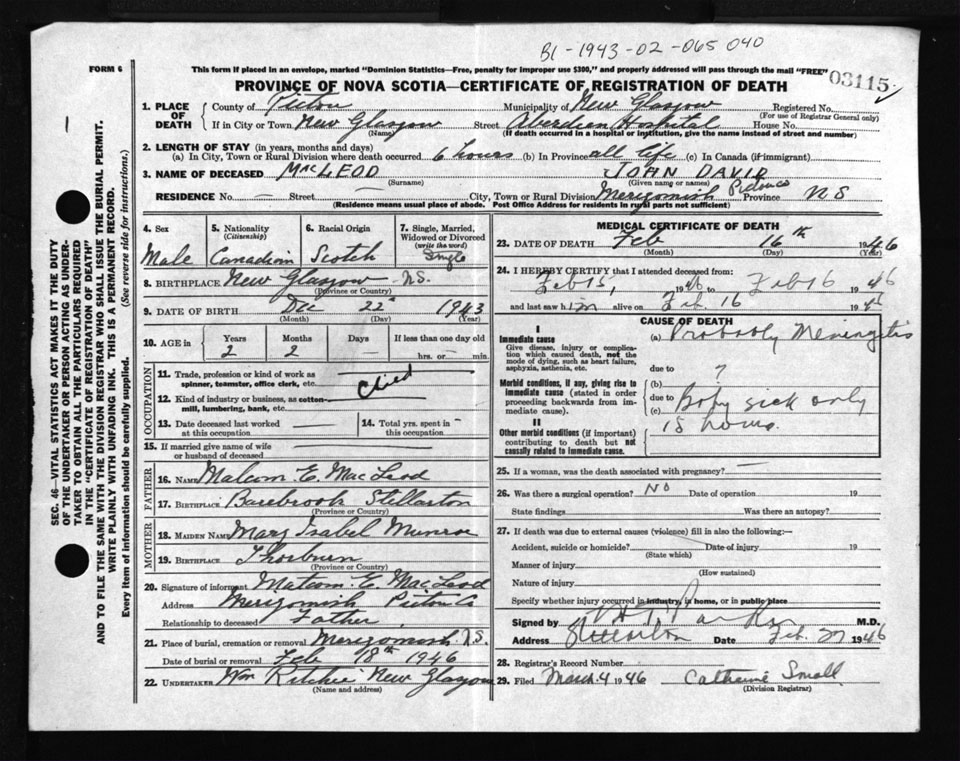 B1-1943-02-065040
FORM 6
This form if placed in an envelope, marked "Dominion Statistics—Free, penalty for improper use $300," and properly addressed will pass through the mail "FREE"
03115
PROVINCE OF NOVA SCOTIA—CERTIFICATE OF REGISTRATION OF DEATH
SEC. 46—VITAL STATISTICS ACT MAKES IT THE DUTY
OF THE UNDERTAKER OR PERSON ACTING AS UNDER-
TAKER TO OBTAIN ALL THE PARTICULARS REQUIRED
IN THE "CERTIFICATE OF REGISTRATION OF DEATH"
AND TO FILE THE SAME WITH THE DIVISION REGISTRAR WHO SHALL ISSUE THE BURIAL PERMIT.
WRITE PLAINLY WITH UNFADING INK. THIS IS A PERMANENT RECORD.
Every item of information should be carefully supplied. (See reverse side for instructions.)
1. PLACE OF DEATH County of Pictou Municipality of New Glasgow Registered No.
(For use of Registrar General only)
If in City or Town New Glasgow Street Aberdeen Hospital House No.
(Name) (If death occurred in a hospital or institution, give the name instead of street and number)
2. LENGTH OF STAY (in years, months and days)
(a) In City, Town or Rural Division where death occurred 6 hours (b) In Province all life (c) In Canada (if immigrant)
3. NAME OF DECEASED MACLEOD JOHN DAVID
(Surname) (Given name or names)
RESIDENCE No. — Street — City, Town or Rural Division Merigomish Pictou Co Province NS
(Residence means usual place of abode. Post Office Address for residents in rural parts not sufficient)
4. Sex 5. Nationality (Citizenship) 6. Racial Origin 7. Single, Married, Widowed or Divorced (write the word)
Male Canadian Scotch Single
8. BIRTHPLACE New Glasgow NS.
(Province or Country)
9. DATE OF BIRTH Dec 22 1943
(Month) (Day) (Year)
10. AGE in Years Months Days If less than one day old
2 2 — hrs. or min.
OCCUPATION
11. Trade, profession or kind of work as spinner, teamster, office clerk, etc. Child
12. Kind of industry or business, as cotton-mill, lumbering, bank, etc.
13. Date deceased last worked at this occupation — 14. Total yrs. spent in this occupation —
15. If married give name of wife or husband of deceased
FATHER
16. NAME Malcom E. MacLeod
17. BIRTHPLACE Stellarton
(Province or Country)
MOTHER
18. MAIDEN NAME Mary Isabel Munroe
19. BIRTHPLACE Thorburn
(Province or Country)
20. Signature of informant Malcom E. MacLeod
Address Merigomish Pictou Co
Relationship to deceased Father
21. Place of burial, cremation or removal Merigomish N.S.
Date of burial or removal Feb 18th 1946
22. UNDERTAKER Wm Ritchie New Glasgow
(Name and address)
MEDICAL CERTIFICATE OF DEATH
23. DATE OF DEATH Feb 16th 1946
(Month) (Day) (Year)
24. I HEREBY CERTIFY that I attended deceased from:
Feb 15, 1946 to Feb 16 1946
and last saw him alive on Feb 16 194
CAUSE OF DEATH
I
Immediate cause (a) Probably Meningitis
Give disease, injury or complica-
tion which caused death, not the
mode of dying, such as heart failure,
asphyxia, asthenia, etc.
due to ?
Morbid conditions, if any, giving rise to (b)
immediate cause (stated in order due to Baby sick only
proceeding backwards from im- (c)
mediate cause). 15 hours.
II
Other morbid conditions (if important)
contributing to death but not
causally related to immediate cause.
25. If a woman, was the death associated with pregnancy? —
26. Was there a surgical operation? NO Date of operation 19
State findings Was there an autopsy?
27. If death was due to external causes (violence) fill in also the following:—
Accident, suicide or homicide? Date of injury 19
(State which)
Manner of injury
(How sustained)
Nature of injury
Specify whether injury occurred in industry, in home, or in public place
Signed by M.D.
Address Stellarton Date Feb. 27 1946
28. Registrar's Record Number
29. Filed March 4 1946 Catherine Small
(Division Registrar)